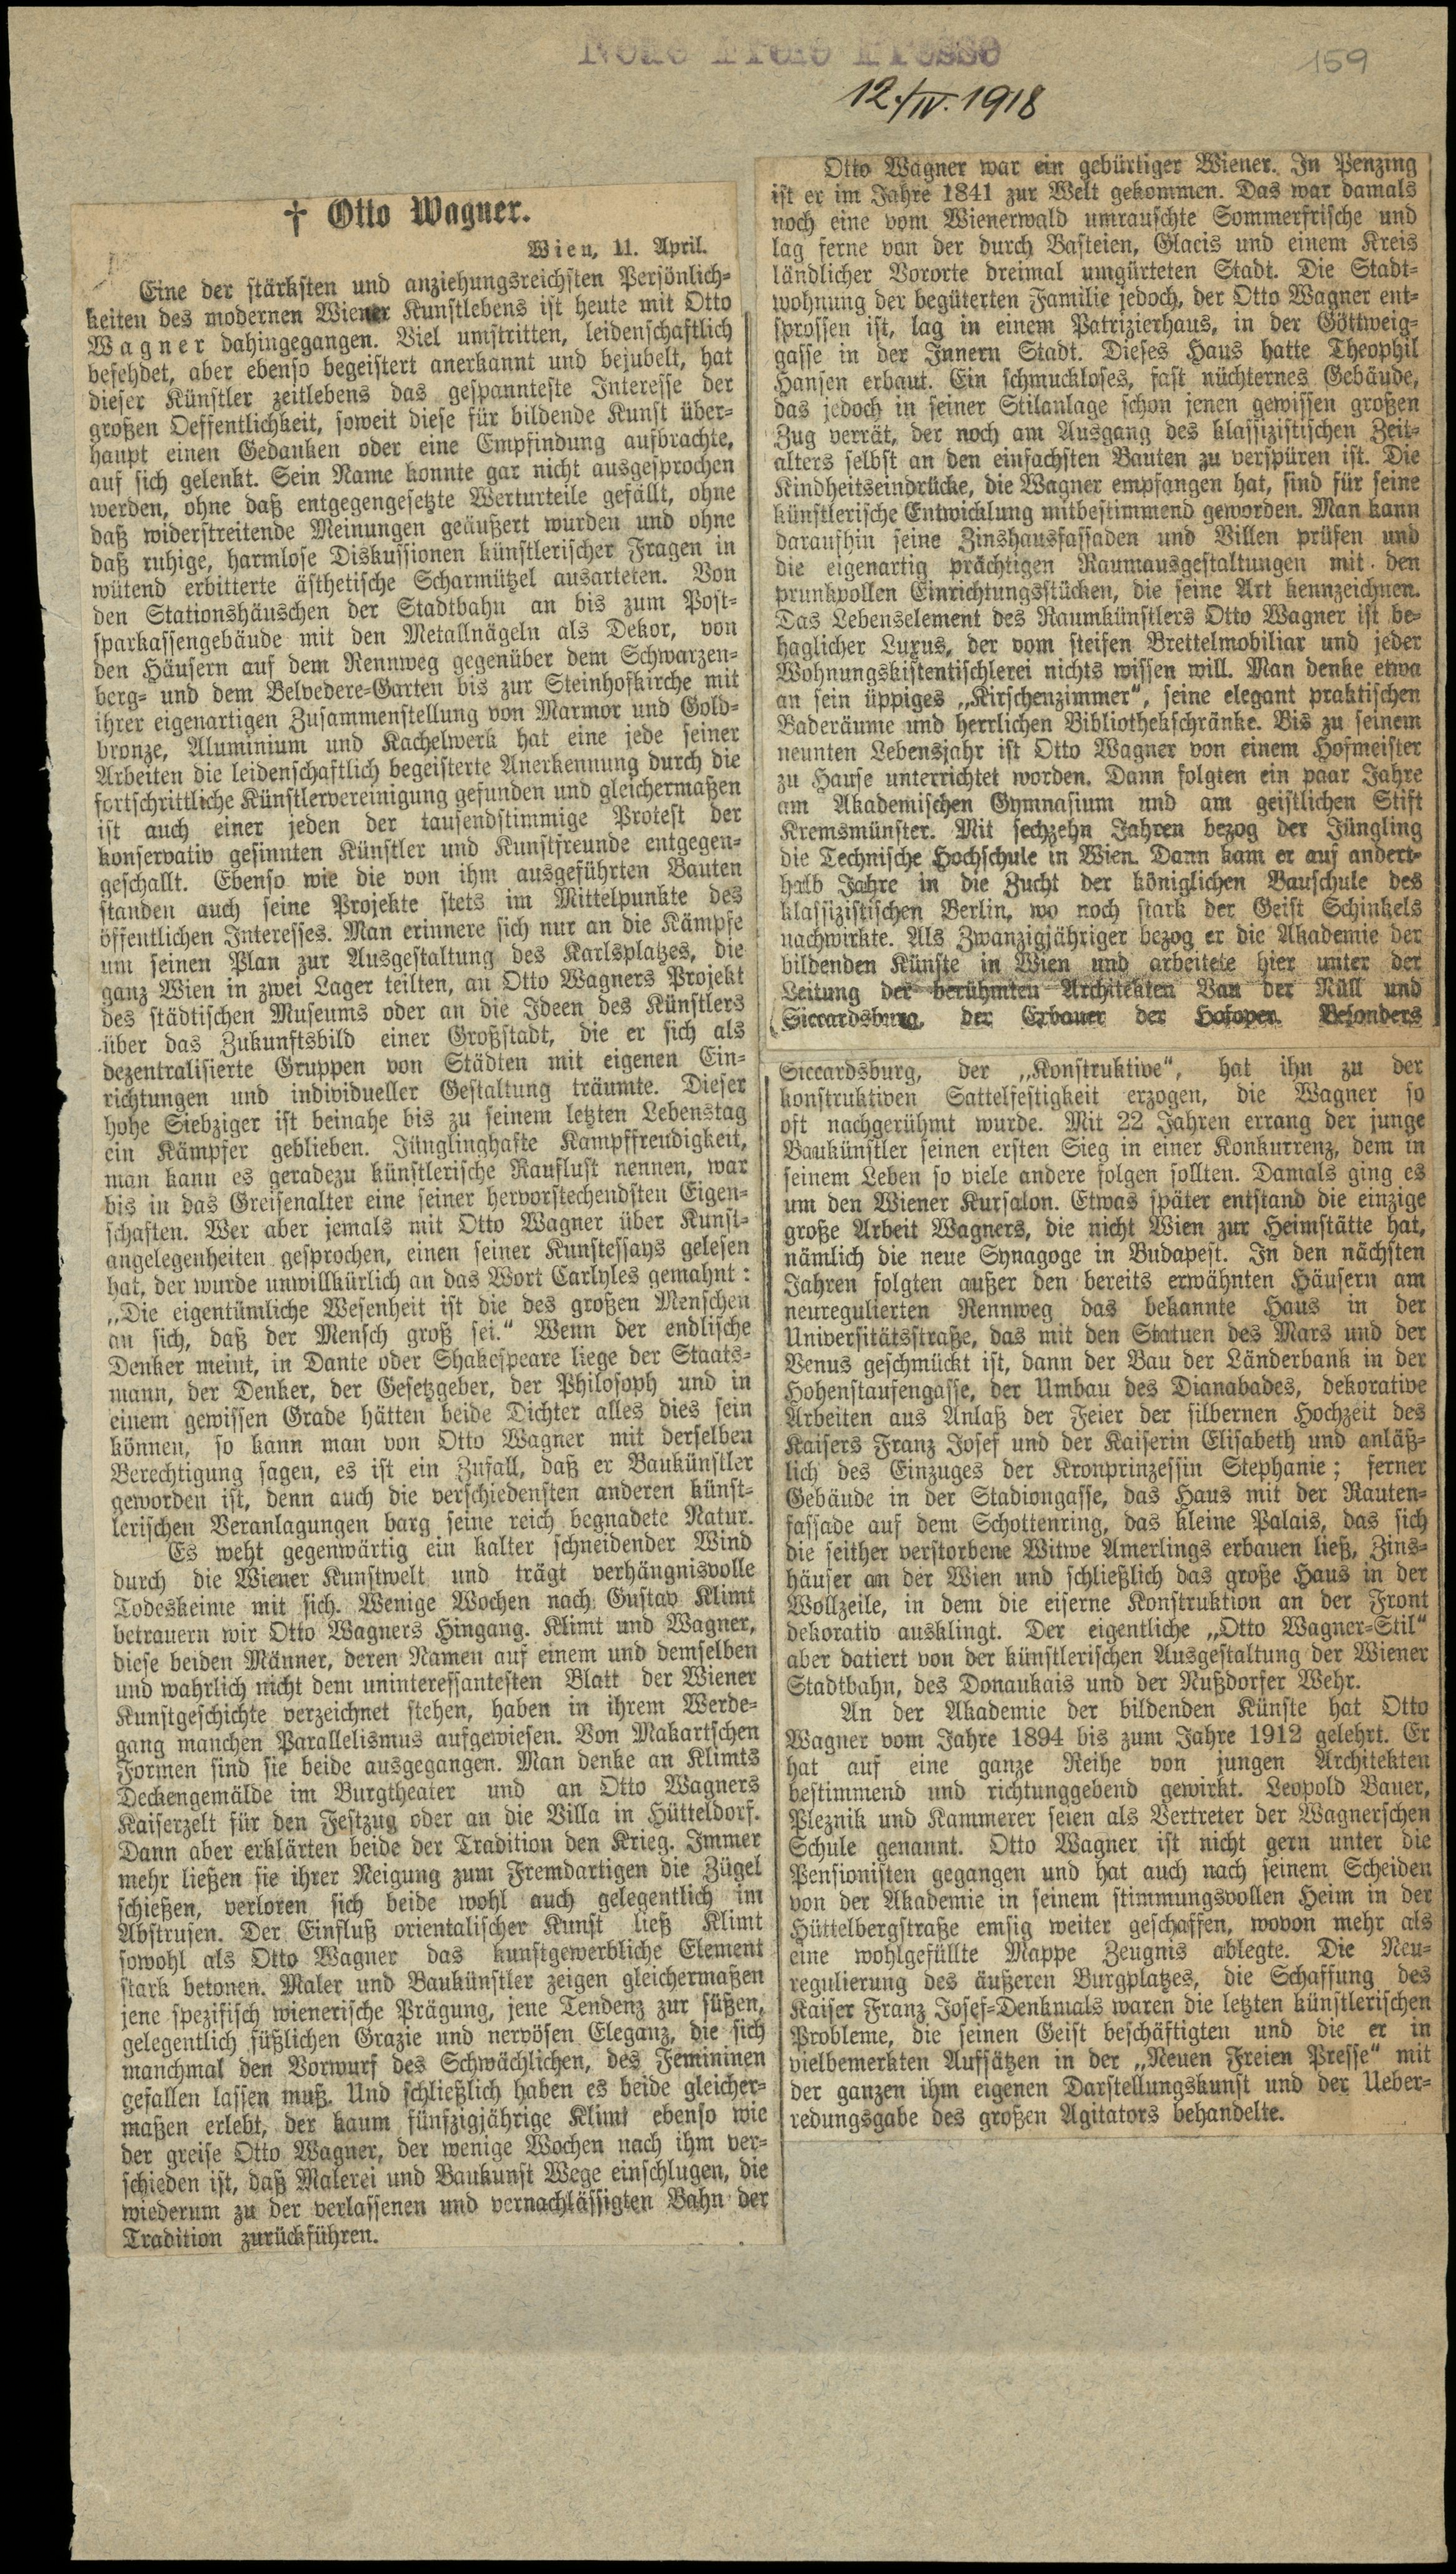 Neue Freie Presse
159
12./IV. 1918
† Otto Wagner.
Wien, 11. April.
Eine der stärksten und anziehungsreichsten Persönlich-
keiten des modernen Wiener Kunstlebens ist heute mit Otto
Wagner dahingegangen. Viel umstritten, leidenschaftlich
befehdet, aber ebenso begeistert anerkannt und bejubelt, hat
dieser Künstler zeitlebens das gespannteste Interesse der
großen Oeffentlichkeit, soweit diese für bildende Kunst über-
haupt einen Gedanken oder eine Empfindung aufbrachte,
auf sich gelenkt. Sein Name konnte gar nicht ausgesprochen
werden, ohne daß entgegengesetzte Werturteile gefällt, ohne
daß widerstreitende Meinungen geäußert wurden und ohne
daß ruhige, harmlose Diskussionen künstlerischer Fragen in
wütend erbitterte ästhetische Scharmützel ausarteten. Von
den Stationshäuschen der Stadtbahn an bis zum Post-
sparkassengebäude mit den Metallnägeln als Dekor, von
den Häusern auf dem Rennweg gegenüber dem Schwarzen-
berg- und dem Belvedere-Garten bis zur Steinhofkirche mit
ihrer eigenartigen Zusammenstellung von Marmor und Gold-
bronze, Aluminium und Kachelwerk hat eine jede seiner
Arbeiten die leidenschaftlich begeisterte Anerkennung durch die
fortschrittliche Künstlervereinigung gefunden und gleichermaßen
ist auch einer jeden der tausendstimmige Protest der
konservativ gesinnten Künstler und Kunstfreunde entgegen-
geschallt. Ebenso wie die von ihm ausgeführten Bauten
standen auch seine Projekte stets im Mittelpunkte des
öffentlichen Interesses. Man erinnere sich nur an die Kämpfe
um seinen Plan zur Ausgestaltung des Karlsplatzes, die
ganz Wien in zwei Lager teilten, an Otto Wagners Projekt
des städtischen Museums oder an die Ideen des Künstlers
über das Zukunftsbild einer Großstadt, die er sich als
dezentralisierte Gruppen von Städten mit eigenen Ein-
richtungen und individueller Gestaltung träumte. Dieser
hohe Siebziger ist beinahe bis zu seinem letzten Lebenstag
ein Kämpfer geblieben. Jünglinghafte Kampffreudigkeit,
man kann es geradezu künstlerische Rauflust nennen, war
bis in das Greisenalter eine seiner hervorstechendsten Eigen-
schaften. Wer aber jemals mit Otto Wagner über Kunst-
angelegenheiten gesprochen, einen seiner Kunstessays gelesen
hat, der wurde unwillkürlich an das Wort Carlyles gemahnt:
„Die eigentümliche Wesenheit ist die des großen Menschen
an sich, daß der Mensch groß sei.“ Wenn der endlische
Denker meint, in Dante oder Shakespeare liege der Staats-
mann, der Denker, der Gesetzgeber, der Philosoph und in
einem gewissen Grade hätten beide Dichter alles dies sein
können, so kann man von Otto Wagner mit derselben
Berechtigung sagen, es ist ein Zufall, daß er Baukünstler
geworden ist, denn auch die verschiedensten anderen künst-
lerischen Veranlagungen barg seine reich begnadete Natur.
Es weht gegenwärtig ein kalter schneidender Wind
durch die Wiener Kunstwelt und trägt verhängnisvolle
Todeskeime mit sich. Wenige Wochen nach Gustav Klimt
betrauern wir Otto Wagners Hingang. Klimt und Wagner,
diese beiden Männer, deren Namen auf einem und demselben
und wahrlich nicht dem uninteressantesten Blatt der Wiener
Kunstgeschichte verzeichnet stehen, haben in ihrem Werde-
gang manchen Parallelismus aufgewiesen. Von Makartschen
Formen sind sie beide ausgegangen. Man denke an Klimts
Deckengemälde im Burgtheater und an Otto Wagners
Kaiserzelt für den Festzug oder an die Villa in Hütteldorf.
Dann aber erklärten beide der Tradition den Krieg. Immer
mehr ließen sie ihrer Neigung zum Fremdartigen die Zügel
schießen, verloren sich beide wohl auch gelegentlich im
Abstrusen. Der Einfluß orientalischer Kunst ließ Klimt
sowohl als Otto Wagner das kunstgewerbliche Element
stark betonen. Maler und Baukünstler zeigen gleichermaßen
jene spezifisch wienerische Prägung, jene Tendenz zur süßen,
gelegentlich süßlichen Grazie und nervösen Eleganz, die sich
manchmal den Vorwurf des Schwächlichen, des Femininen
gefallen lassen muß. Und schließlich haben es beide gleicher-
maßen erlebt, der kaum fünfzigjährige Klimt ebenso wie
der greise Otto Wagner, der wenige Wochen nach ihm ver-
schieden ist, daß Malerei und Baukunst Wege einschlugen, die
wiederum zu der verlassenen und vernachlässigten Bahn der
Tradition zurückführen.
Otto Wagner war ein gebürtiger Wiener. In Penzing
ist er im Jahre 1841 zur Welt gekommen. Das war damals
noch eine vom Wienerwald umrauschte Sommerfrische und
lag ferne von der durch Basteien, Glacis und einem Kreis
ländlicher Vororte dreimal umgürteten Stadt. Die Stadt-
wohnung der begüterten Familie jedoch, der Otto Wagner ent-
sprossen ist, lag in einem Patrizierhaus, in der Göttweig-
gasse in der Innern Stadt. Dieses Haus hatte Theophil
Hansen erbaut. Ein schmuckloses, fast nüchternes Gebäude,
das jedoch in seiner Stilanlage schon jenen gewissen großen
Zug verrät, der noch am Ausgang des klassizistischen Zeit-
alters selbst an den einfachsten Bauten zu verspüren ist. Die
Kindheitseindrücke, die Wagner empfangen hat, sind für seine
künstlerische Entwicklung mitbestimmend geworden. Man kann
daraufhin seine Zinshausfassaden und Villen prüfen und
die eigenartig prächtigen Raumausgestaltungen mit den
prunkvollen Einrichtungsstücken, die seine Art kennzeichnen.
Das Lebenselement des Raumkünstlers Otto Wagner ist be-
haglicher Luxus, der vom steifen Brettelmobiliar und jeder
Wohnungskistentischlerei nichts wissen will. Man denke etwa
an sein üppiges „Kirschenzimmer“, seine elegant praktischen
Baderäume und herrlichen Bibliothekschränke. Bis zu seinem
neunten Lebensjahr ist Otto Wagner von einem Hofmeister
zu Hause unterrichtet worden. Dann folgten ein paar Jahre
am Akademischen Gymnasium und am geistlichen Stift
Kremsmünster. Mit sechzehn Jahren bezog der Jüngling
die Technische Hochschule in Wien. Dann kam er auf andert-
halb Jahre in die Zucht der königlichen Bauschule des
klassizistischen Berlin, wo noch stark der Geist Schinkels
nachwirkte. Als Zwanzigjähriger bezog er die Akademie der
bildenden Künste in Wien und arbeitete hier unter der
Leitung der berühmten Architekten Van der Nüll und
Siccardsburg, der Erbauer der Hofoper. Besonders
Siccardsburg, der „Konstruktive“, hat ihn zu der
konstruktiven Sattelfestigkeit erzogen, die Wagner so
oft nachgerühmt wurde. Mit 22 Jahren errang der junge
Baukünstler seinen ersten Sieg in einer Konkurrenz, dem in
seinem Leben so viele andere folgen sollten. Damals ging es
um den Wiener Kursalon. Etwas später entstand die einzige
große Arbeit Wagners, die nicht Wien zur Heimstätte hat,
nämlich die neue Synagoge in Budapest. In den nächsten
Jahren folgten außer den bereits erwähnten Häusern am
neuregulierten Rennweg das bekannte Haus in der
Universitätsstraße, das mit den Statuen des Mars und der
Venus geschmückt ist, dann der Bau der Länderbank in der
Hohenstaufengasse, der Umbau des Dianabades, dekorative
Arbeiten aus Anlaß der Feier der silbernen Hochzeit des
Kaisers Franz Josef und der Kaiserin Elisabeth und anläß-
lich des Einzuges der Kronprinzessin Stephanie; ferner
Gebäude in der Stadiongasse, das Haus mit der Rauten-
fassade auf dem Schottenring, das kleine Palais, das sich
die seither verstorbene Witwe Amerlings erbauen ließ, Zins-
häuser an der Wien und schließlich das große Haus in der
Wollzeile, in dem die eiserne Konstruktion an der Front
dekorativ ausklingt. Der eigentliche „Otto Wagner-Stil“
aber datiert von der künstlerischen Ausgestaltung der Wiener
Stadtbahn, des Donaukais und der Nußdorfer Wehr.
An der Akademie der bildenden Künste hat Otto
Wagner vom Jahre 1894 bis zum Jahre 1912 gelehrt. Er
hat auf eine ganze Reihe von jungen Architekten
bestimmend und richtunggebend gewirkt. Leopold Bauer,
Pleznik und Kammerer seien als Vertreter der Wagnerschen
Schule genannt. Otto Wagner ist nicht gern unter die
Pensionisten gegangen und hat auch nach seinem Scheiden
von der Akademie in seinem stimmungsvollen Heim in der
Hüttelbergstraße emsig weiter geschaffen, wovon mehr als
eine wohlgefüllte Mappe Zeugnis ablegte. Die Neu-
regulierung des äußeren Burgplatzes, die Schaffung des
Kaiser Franz Josef-Denkmals waren die letzten künstlerischen
Probleme, die seinen Geist beschäftigten und die er in
vielbemerkten Aufsätzen in der „Neuen Freien Presse“ mit
der ganzen ihm eigenen Darstellungskunst und der Ueber-
redungsgabe des großen Agitators behandelte.